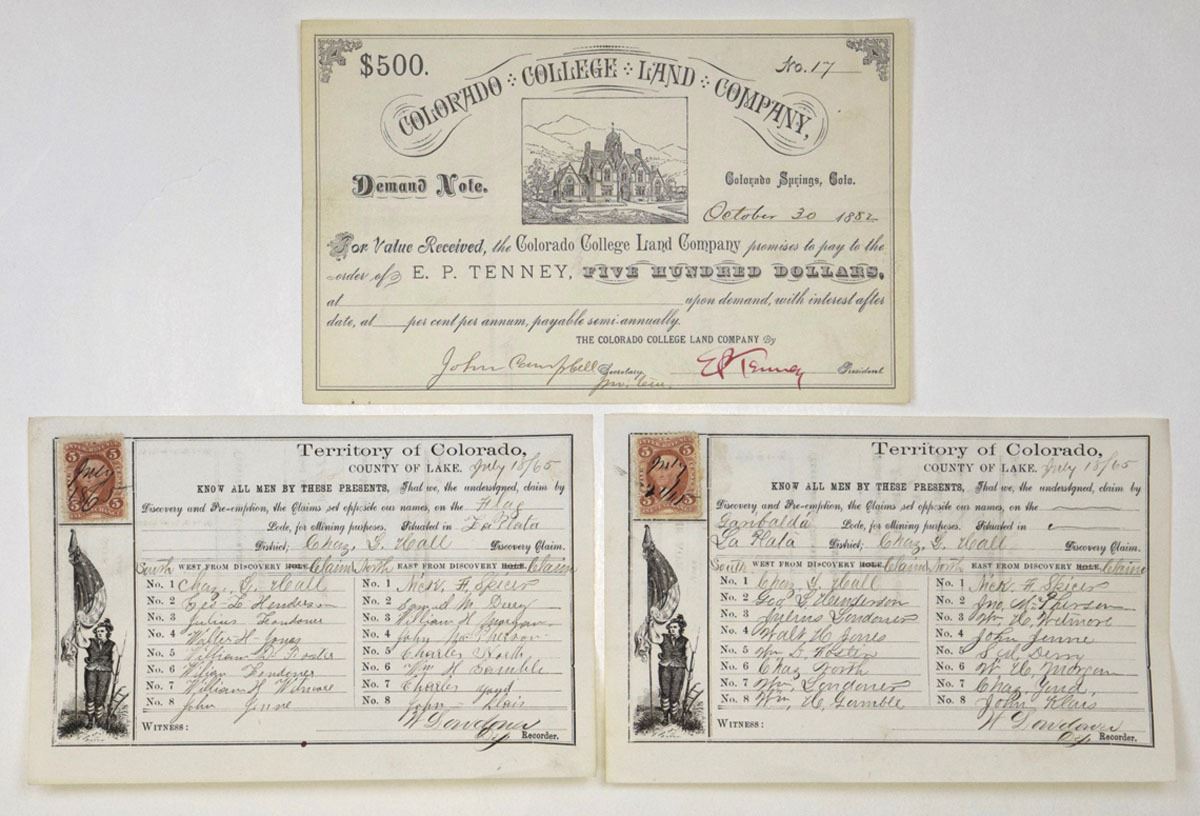 $500.
No. 17
COLORADO COLLEGE LAND COMPANY,
Demand Note.
Colorado Springs, Colo.
October 30 1882
For Value Received, the Colorado College Land Company promises to pay to the
order of E. P. TENNEY, FIVE HUNDRED DOLLARS,
at upon demand, with interest after
date, at per cent per annum, payable semi-annually.
THE COLORADO COLLEGE LAND COMPANY By
John Campbell Secretary E P Tenney President
Territory of Colorado,
COUNTY OF LAKE. July 18/65
KNOW ALL MEN BY THESE PRESENTS, That we, the undersigned, claim by
Discovery and Pre-emption, the Claims set opposite our names, on the Flag
Lode, for Mining purposes. Situated in La Plata
District; Chaz. G. Hall Discovery Claim.
South WEST FROM DISCOVERY HOLE Claim North EAST FROM DISCOVERY HOLE Claim
No. 1 Chaz. G. Hall No. 1 Nick. F. Spicer
No. 2 Geo L Henderson No. 2
No. 3 Julius Londoner No. 3 William H
No. 4 Walter H. Jones No. 4 John McPherson
No. 5 William D. Foster No. 5 Charles North,
No. 6 Londoner No. 6 Wm H. Gamble
No. 7 William H Wilmore No. 7 Charles
No. 8 John Jenne No. 8 John
WITNESS: W Londoner
Recorder.
5 5
July
Territory of Colorado,
COUNTY OF LAKE. July 18/65
KNOW ALL MEN BY THESE PRESENTS, That we, the undersigned, claim by
Discovery and Pre-emption, the Claims set opposite our names, on the
Garibalda Lode, for Mining purposes. Situated in
La Plata District; Chaz. G. Hall Discovery Claim.
South WEST FROM DISCOVERY HOLE Claim North EAST FROM DISCOVERY HOLE Claim
No. 1 Chaz. G. Hall No. 1 Nick. F. Spicer
No. 2 Geo L Henderson No. 2 Jno. McPherson
No. 3 Julius Londoner No. 3 Wm. H. Wilmore
No. 4 Walt. H. Jones No. 4 John Jenne
No. 5 Wm D. Foster No. 5 Derry
No. 6 Chaz North No. 6 W. H. Morgan
No. 7 Wm. Londoner No. 7 Chaz
No. 8 Wm. H. Gamble No. 8 John Klais
WITNESS: W Londoner
Recorder.
5 5
July